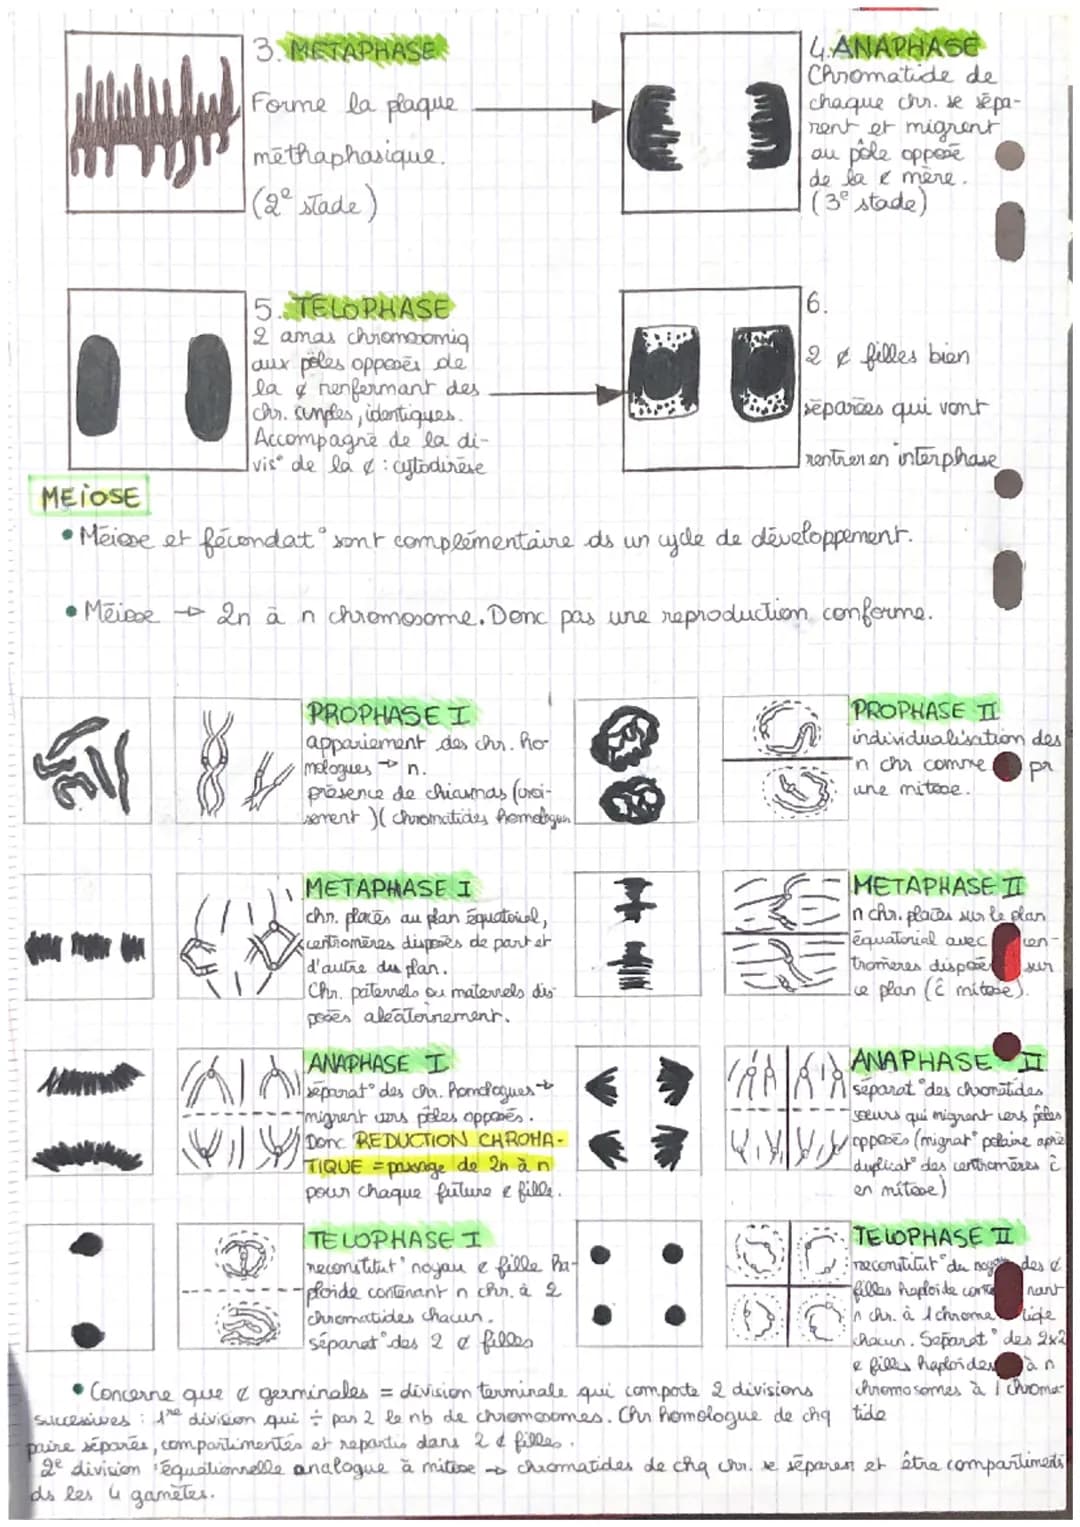 3. METAPHASE
Forme la plaque
méthaphasique.
(2e stade)
4. ANAPHASE
Chromatide de
chaque chr. se sépa-
rent et migrent
au pôle opposé
de la ¢ mère.
(3e stade)
5. TELOPHASE
2 amas chromosomiq
aux pôles opposés de
la ¢ renfermant des
chr. simples, identiques.
Accompagné de la di-
vis° de la ¢ : cytodiérèse
6.
2 ¢ filles bien
séparées qui vont
rentrer en interphase
MEIOSE
• Méiose et fécondat° sont complémentaire ds un cycle de développement.
• Méiose → 2n à n chromosome. Donc pas une reproduction conforme.
PROPHASE I
appariement des chr. ho-
mologues → n.
présence de chiasmas (croi-
sement)( chromatides homologues
PROPHASE II
individualisation des
n chr comme pr
une mitose.
METAPHASE I
chr. placés au plan équatorial,
centromères disposés de part et
d'autre du plan.
Chr. paternels ou maternels dis-
posés aléatoirement.
METAPHASE II
n chr. placés sur le plan
équatorial avec cen-
tromères disposés sur
ce plan (ĉ mitose).
ANAPHASE I
séparat° des chr. homologues →
migrent vers pôles opposés.
Donc REDUCTION CHROMA-
TIQUE = passage de 2n à n
pour chaque future ¢ fille.
ANAPHASE II
séparat° des chromatides
sœurs qui migrent vers pôles
opposés (migrat° polaire après
duplicat° des centromères ĉ
en mitose)
TELOPHASE I
reconstitut° noyau ¢ fille ha-
ploïde contenant n chr. à 2
chromatides chacun.
séparat° des 2 ¢ filles
TELOPHASE II
reconstitut° du des ¢
filles haploïde nant
n chr. à 1 chroma tide
chacun. Séparat° des 2x2
¢ filles haploïdes à n
chromosomes à 1 chroma-
tide
• Concerne que ¢ germinales = division terminale qui comporte 2 divisions
successives : 1re division qui ÷ par 2 le nb de chromosomes. Chr homologue de chq
paire séparés, compartimentés et repartis dans 2 ¢ filles.
2e division équationnelle analogue à mitose → chromatides de chq chr. se séparer et être compartimentés
ds les 4 gamètes.